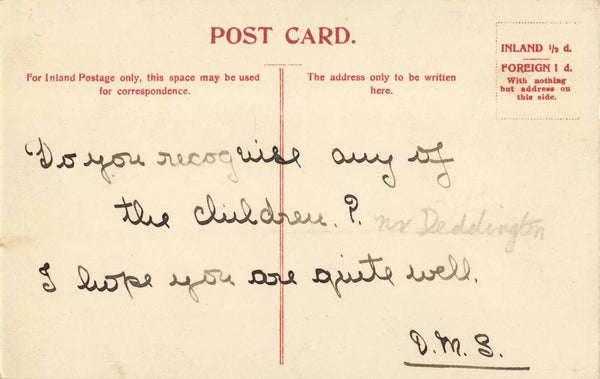 POST CARD.
INLAND ½ d.
FOREIGN 1 d.
With nothing
but address on
this side.
For Inland Postage only, this space may be used
for correspondence.
The address only to be written
here.
Do you recognise any of
the children. ?
nr Deddington
I hope you are quite well.
D.M.S.